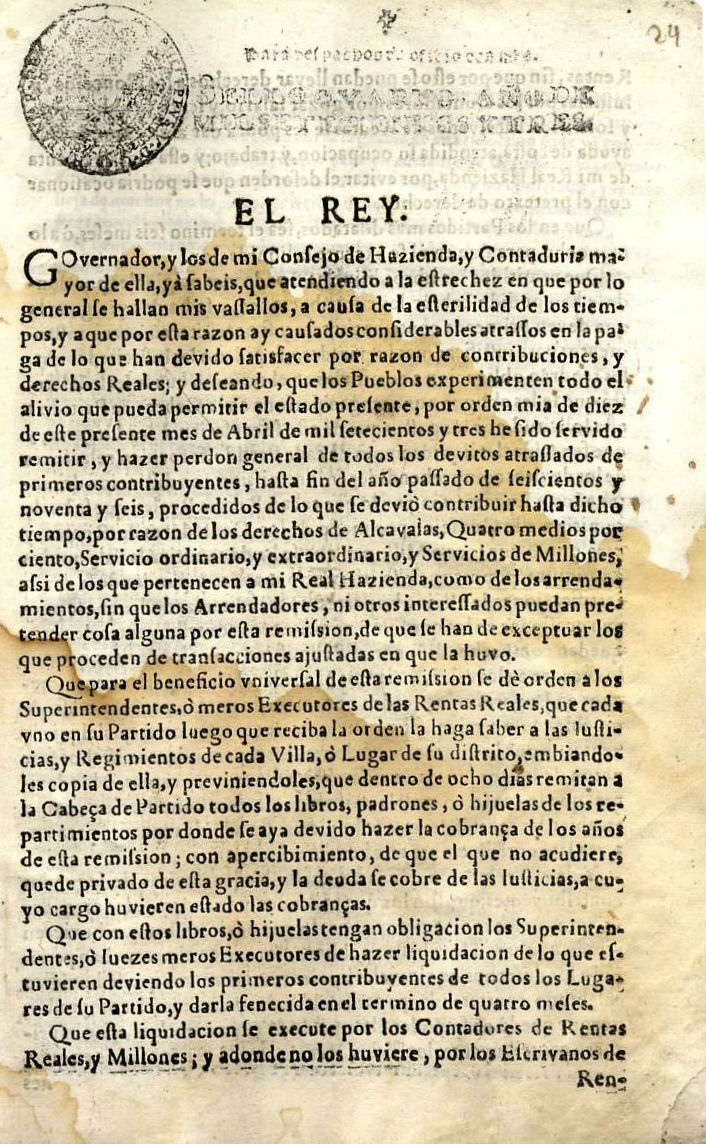 24
Para despachos de oficio
SELLO QVARTO, AÑO DE
MIL SETECIENTOS Y TRES.
EL REY.
GOvernador, y los de mi Consejo de Hazienda, y Contaduria ma-
yor de ella, yà sabeis, que atendiendo a la estrechez en que por lo
general se hallan mis vassallos, a causa de la esterilidad de los tiem-
pos, y a que por esta razon ay causados considerables atrassos en la pa-
ga de lo que han devido satisfacer por razon de contribuciones, y
derechos Reales; y deseando, que los Pueblos experimenten todo el
alivio que pueda permitir el estado presente, por orden mia de diez
de este presente mes de Abril de mil setecientos y tres he sido servido
remitir, y hazer perdon general de todos los devitos atrassados de
primeros contribuyentes, hasta fin del año passado de seiscientos y
noventa y seis, procedidos de lo que se deviò contribuir hasta dicho
tiempo, por razon de los derechos de Alcavalas, Quatro medios por
ciento, Servicio ordinario, y extraordinario, y Servicios de Millones,
assi de los que pertenecen a mi Real Hazienda, como de los arrenda-
mientos, sin que los Arrendadores, ni otros interessados puedan pre-
tender cosa alguna por esta remission, de que se han de exceptuar los
que proceden de transacciones ajustadas en que la huvo.
Que para el beneficio vniversal de esta remission se dè orden a los
Superintendentes, ò meros Executores de las Rentas Reales, que cada
vno en su Partido luego que reciba la orden la haga saber a las Iusti-
cias, y Regimientos de cada Villa, ò Lugar de su distrito, embiando-
les copia de ella, y previniendoles, que dentro de ocho dias remitan a
la Cabeça de Partido todos los libros, padrones, ò hijuelas de los re-
partimientos por donde se aya devido hazer la cobrança de los años
de esta remission; con apercibimiento, de que el que no acudiere,
quede privado de esta gracia, y la deuda se cobre de las Iusticias, a cu-
yo cargo huvieren estado las cobranças.
Que con estos libros, ò hijuelas tengan obligacion los Superinten-
dentes, ò Iuezes meros Executores de hazer liquidacion de lo que es-
tuvieren deviendo los primeros contribuyentes de todos los Luga-
res de su Partido, y darla fenecida en el termino de quatro meses.
Que esta liquidacion se execute por los Contadores de Rentas
Reales, y Millones; y adonde no los huviere, por los Escrivanos de
Ren-